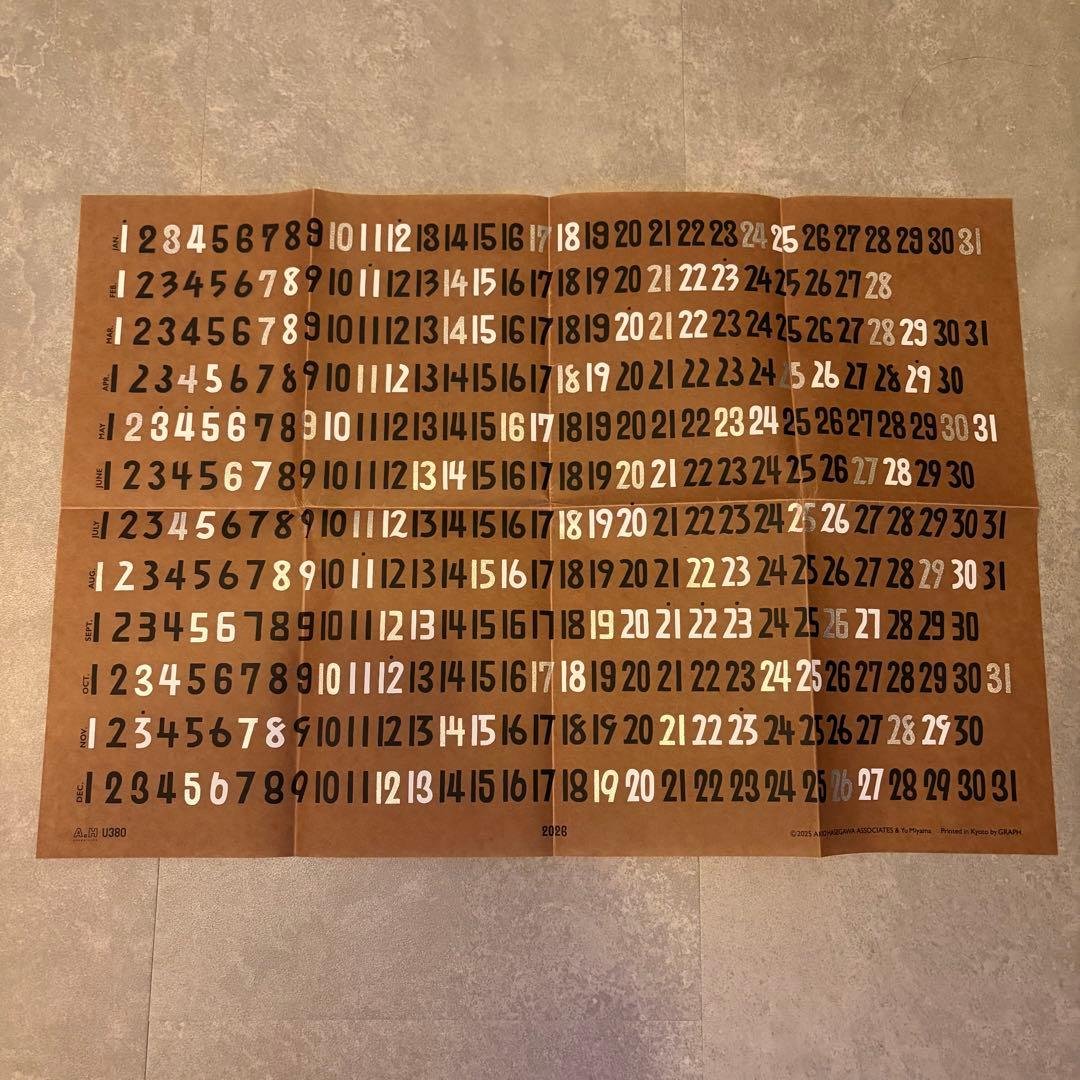 JAN. 1 2 3 4 5 6 7 8 9 10 11 12 13 14 15 16 17 18 19 20 21 22 23 24 25 26 27 28 29 30 31
FEB. 1 2 3 4 5 6 7 8 9 10 11 12 13 14 15 16 17 18 19 20 21 22 23 24 25 26 27 28
MAR. 1 2 3 4 5 6 7 8 9 10 11 12 13 14 15 16 17 18 19 20 21 22 23 24 25 26 27 28 29 30 31
APR. 1 2 3 4 5 6 7 8 9 10 11 12 13 14 15 16 17 18 19 20 21 22 23 24 25 26 27 28 29 30
MAY 1 2 3 4 5 6 7 8 9 10 11 12 13 14 15 16 17 18 19 20 21 22 23 24 25 26 27 28 29 30 31
JUNE 1 2 3 4 5 6 7 8 9 10 11 12 13 14 15 16 17 18 19 20 21 22 23 24 25 26 27 28 29 30
JULY 1 2 3 4 5 6 7 8 9 10 11 12 13 14 15 16 17 18 19 20 21 22 23 24 25 26 27 28 29 30 31
AUG. 1 2 3 4 5 6 7 8 9 10 11 12 13 14 15 16 17 18 19 20 21 22 23 24 25 26 27 28 29 30 31
SEPT. 1 2 3 4 5 6 7 8 9 10 11 12 13 14 15 16 17 18 19 20 21 22 23 24 25 26 27 28 29 30
OCT. 1 2 3 4 5 6 7 8 9 10 11 12 13 14 15 16 17 18 19 20 21 22 23 24 25 26 27 28 29 30 31
NOV. 1 2 3 4 5 6 7 8 9 10 11 12 13 14 15 16 17 18 19 20 21 22 23 24 25 26 27 28 29 30
DEC. 1 2 3 4 5 6 7 8 9 10 11 12 13 14 15 16 17 18 19 20 21 22 23 24 25 26 27 28 29 30 31
A.H U380 2026 ©2025 AKIO HASEGAWA ASSOCIATES & Yu Miyama Printed in Kyoto by GRAPH